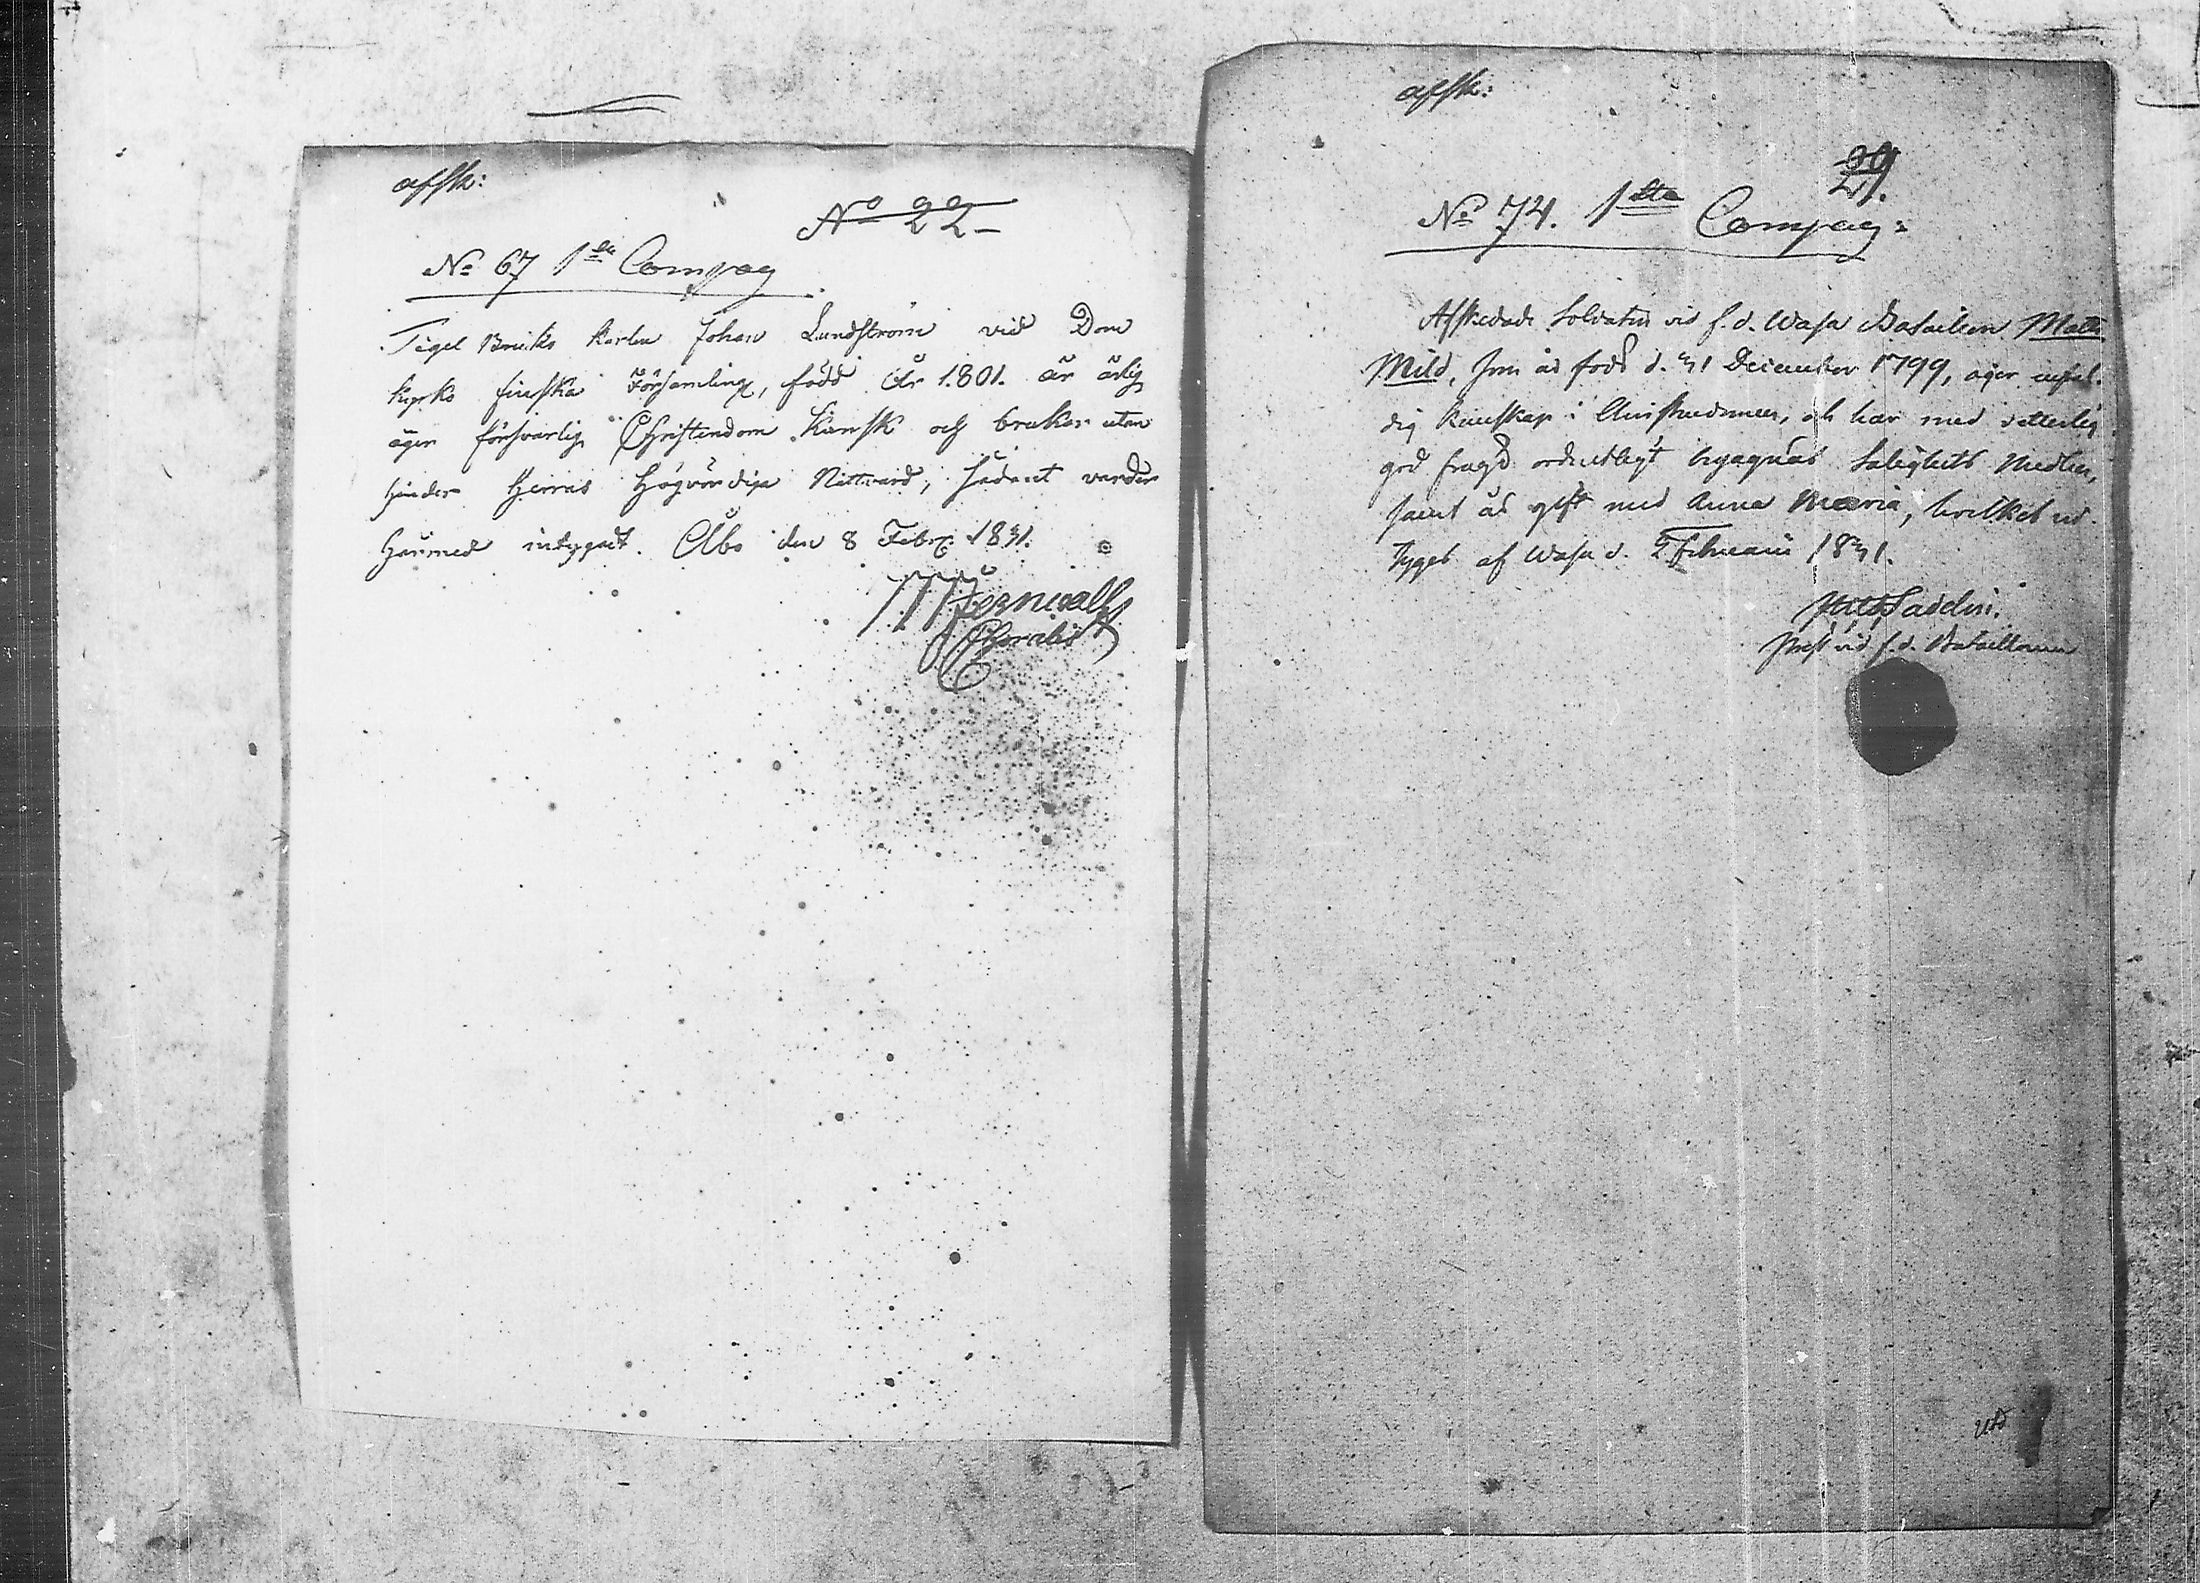 afsk:
No 22
No 67 1sta Compag
Tigel Bruks karlen Johan Lundström vid Dom
kyrko finska Församling, född År 1801. är ärlig
äger försvarlig Christendoms Kunsk och brukar utan
hinder Herrans Högvördiga Nattvard, sådant varder
härmed intygadt. Åbo den 8 Febr. 1831.
afsk:
29.
No 74. 1sta Compag:
Afskedade Soldaten vid f.d. Wasa Bataillon Matts
Mild, som är född d. 31 December 1799, äger
dig kunskap i Christendomen, och har med
god frägd ordentligt begagnat Salighets Medlen,
samt är gift med Anna Maria, hvilket
tygas af Wasa d. 2 Februarii 1831.
Prest vid f.d. Bataillonen